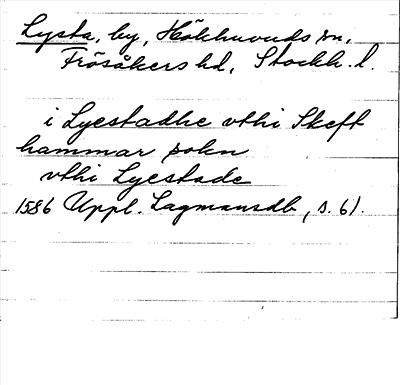 Lysta, by, Hökhuvuds sn,
Frösåkers hd, Stockh. l.
i Lyestadhe vthi Skeft
hammar sokn
vthi Lyestade
1586 Uppl. Lagmansdb, s. 61.